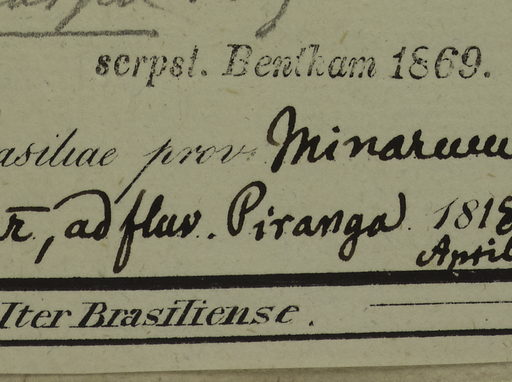 scrpst. Bentham 1869.
asiliae prov. Minarum
r̄, ad fluv. Piranga. 1818
April
Iter Brasiliense.